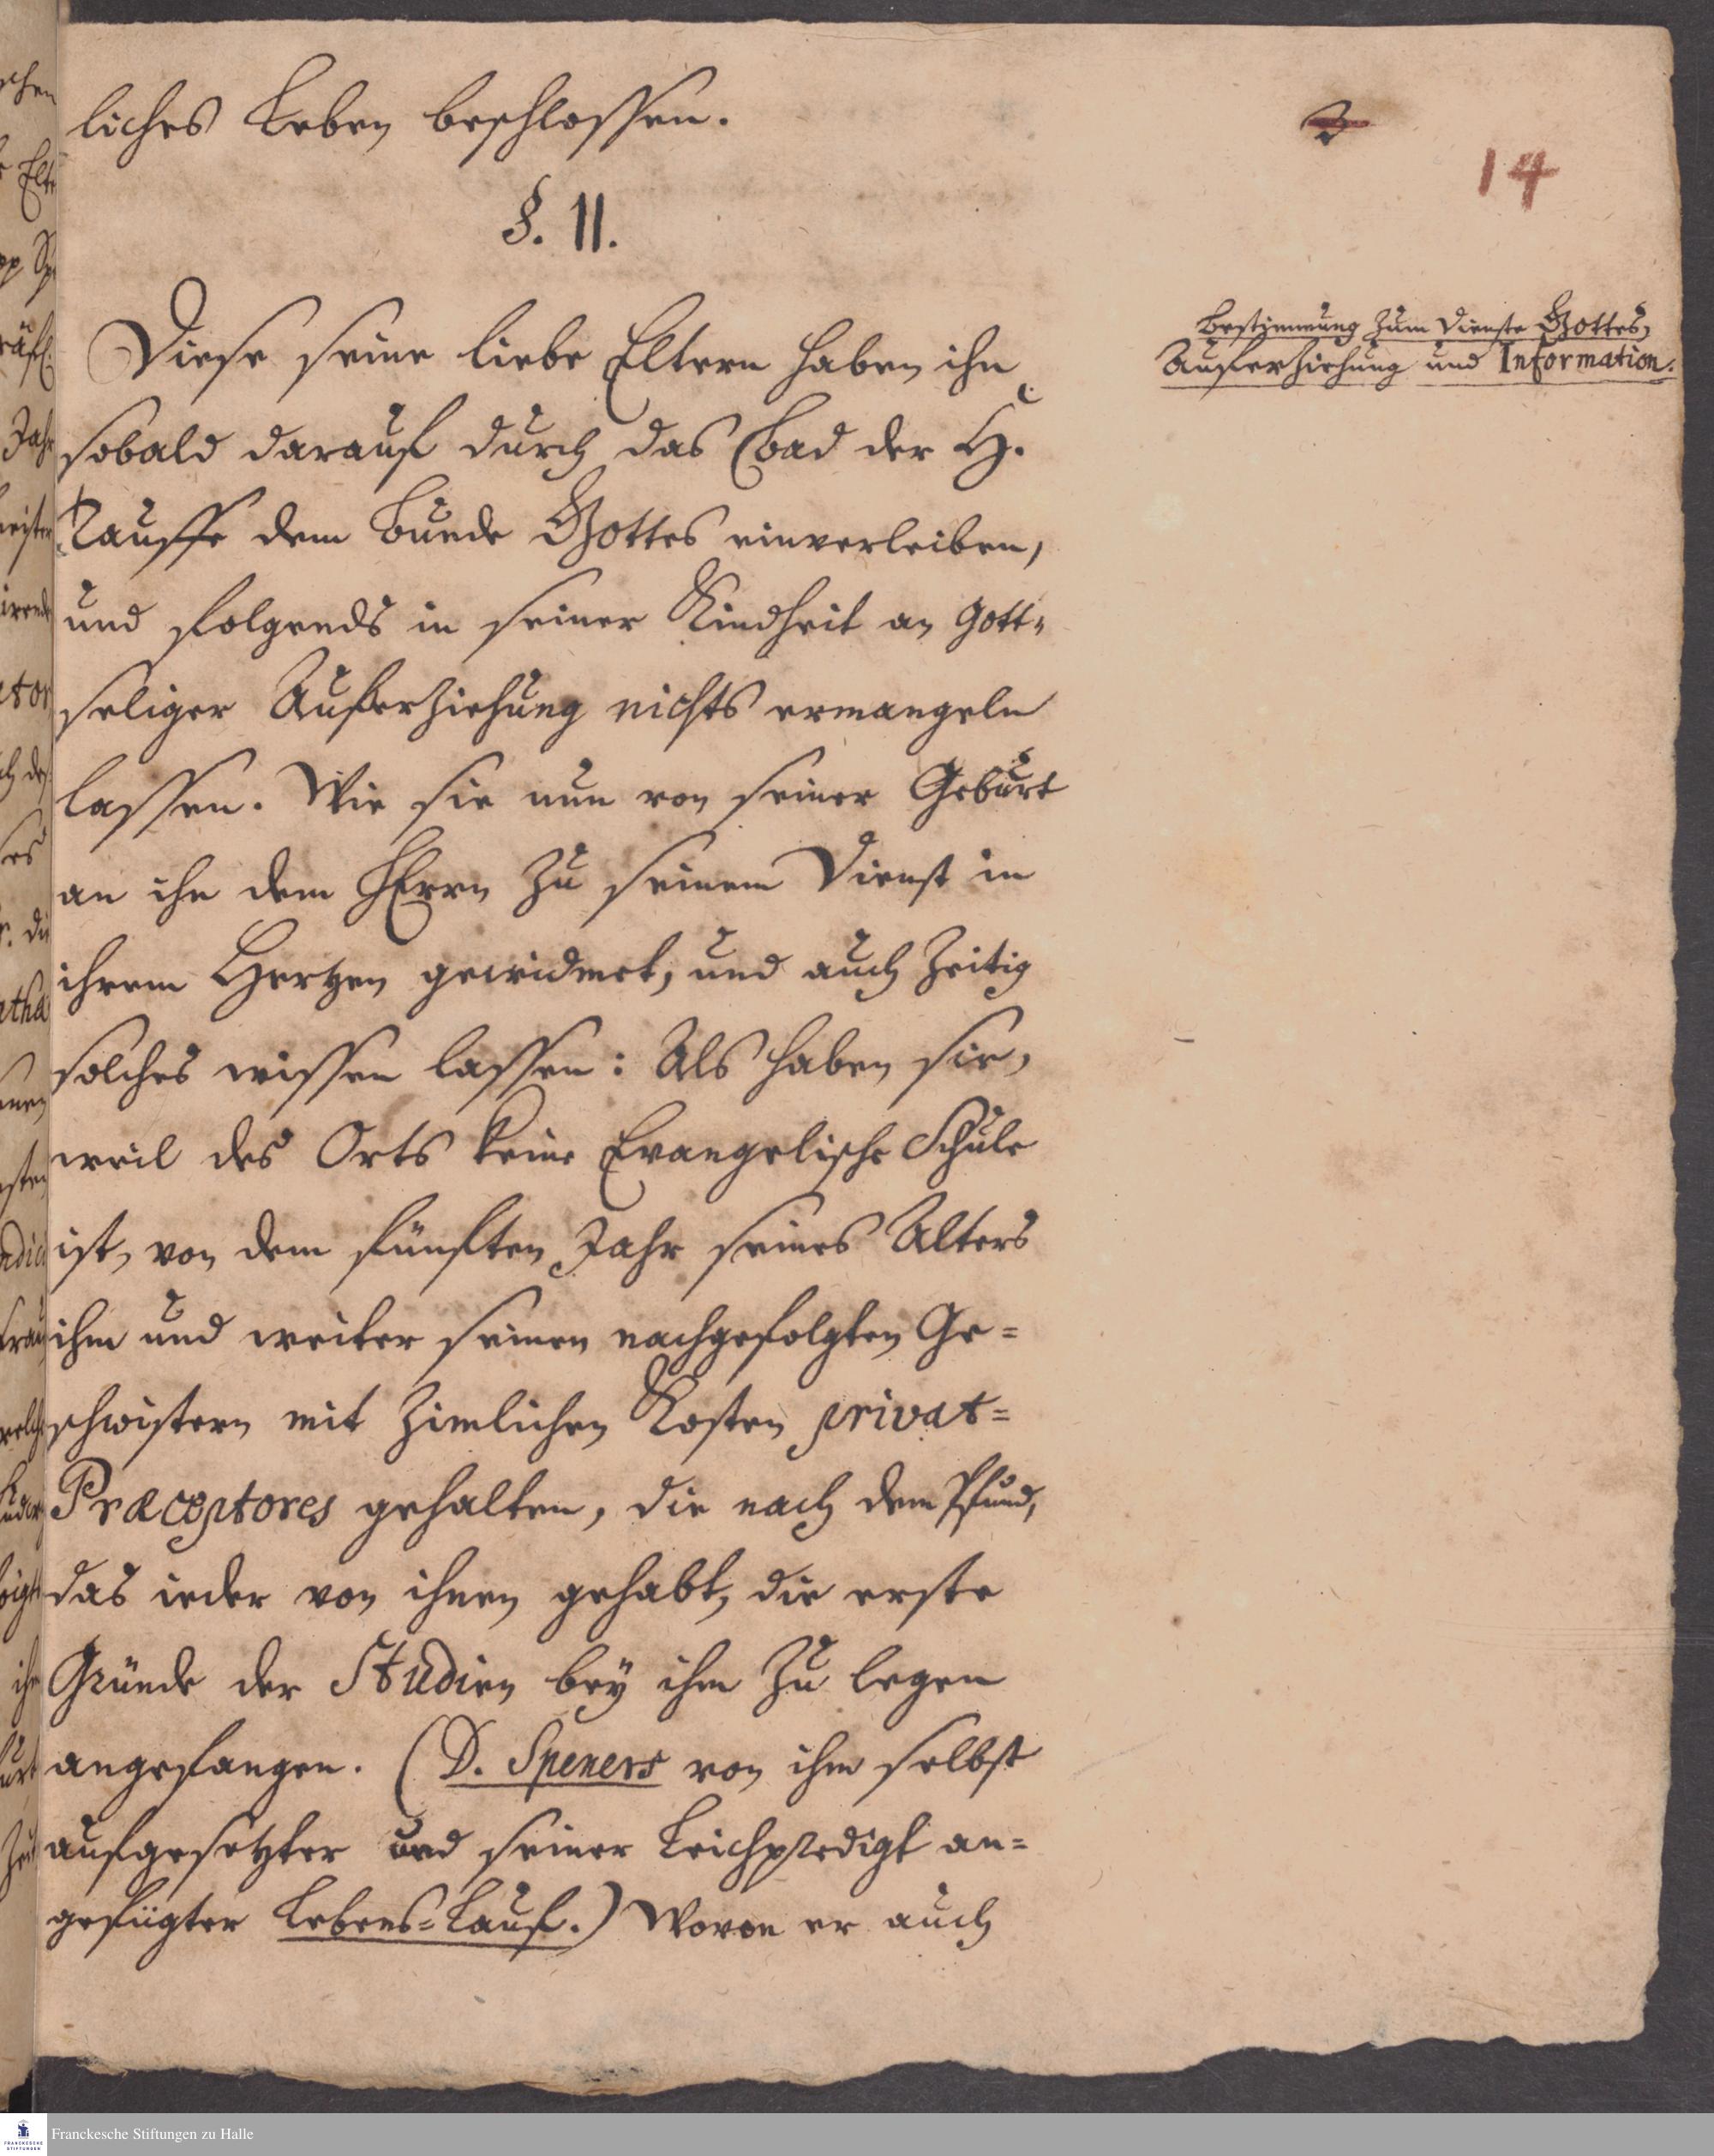 liches Leben beschlossen.
14
§. II.
Bestimmung zum Dienste Gottes,
Auferziehung und Information.
Diese seine liebe Eltern haben ihn
sobald darauf durch das Bad der H.
Tauffe dem Bunde Gottes einverleiben,
und folgends in seiner Kindheit an gott-
seliger Auferziehung nichts ermangeln
lassen. Wie sie nun von seiner Geburt
an ihn dem HErrn zu seinem Dienst in
ihrem Hertzen gewidmet, und auch zeitig
solches wissen lassen: Als haben sie,
weil des Orts keine Evangelische Schule
ist, von dem fünften Jahr seines Alters
ihm und weiter seinen nachgefolgten Ge=
schwistern mit zimlichen Kosten privat=
Præceptores gehalten, die nach dem Pfund,
das ieder von ihnen gehabt, die erste
Gründe der Studien bey ihm zu legen
angefangen. (D. Speners von ihm selbst
aufgesetzter und seiner Leichpredigt an=
gefügter Lebens=Lauf.) Wovon er auch
Franckesche Stiftungen zu Halle